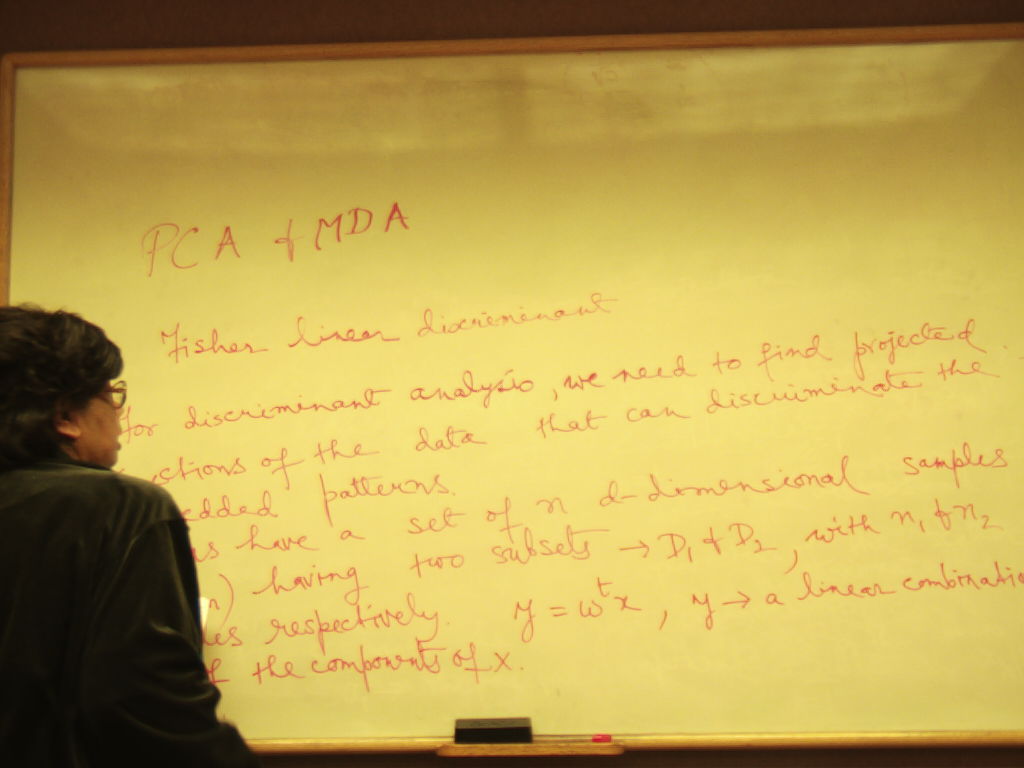 PCA & MDA
Fisher linear discriminant
for discriminant analysis, we need to find projected
ections of the data that can discriminate the
edded patterns.
us have a set of n d-dimensional samples
n) having two subsets → D₁ & D₂, with n₁ & n₂
les respectively. y = wᵗx, y → a linear combinatio
of the components of x.